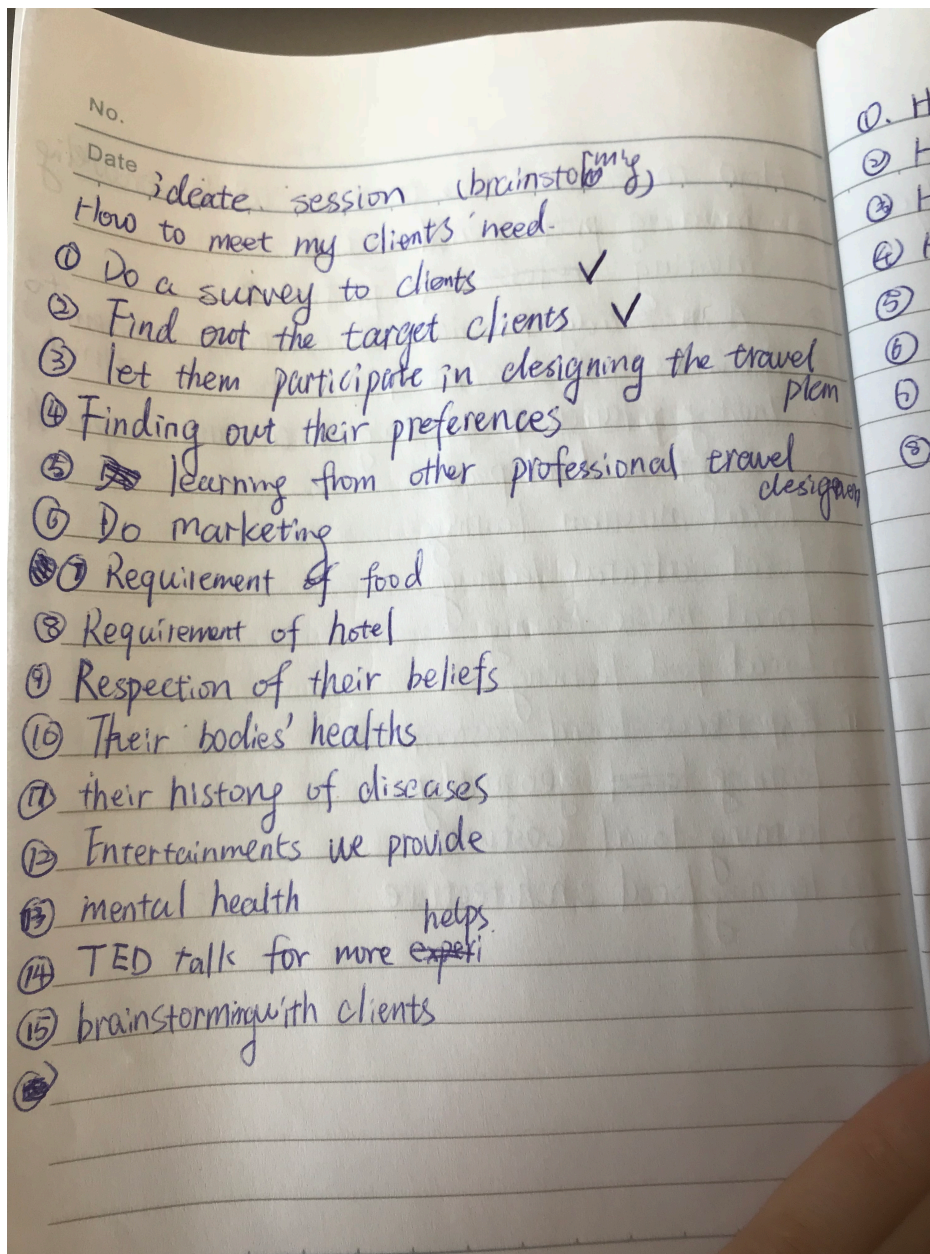 No.
Date
ideate session (brainstorming)
How to meet my clients' need.
① Do a survey to clients ✓
② Find out the target clients ✓
③ let them participate in designing the travel
plan
④ Finding out their preferences
⑤ learning from other professional travel
⑥ Do marketing
⑦ Requirement of food
⑧ Requirement of hotel
⑨ Respection of their beliefs
⑩ Their bodies' healths
⑪ their history of diseases
⑫ Entertainments we provide
⑬ mental health
helps.
⑭ TED talk for more
⑮ brainstorming with clients
①. H
② H
③ H
④ H
⑤
⑥
⑧